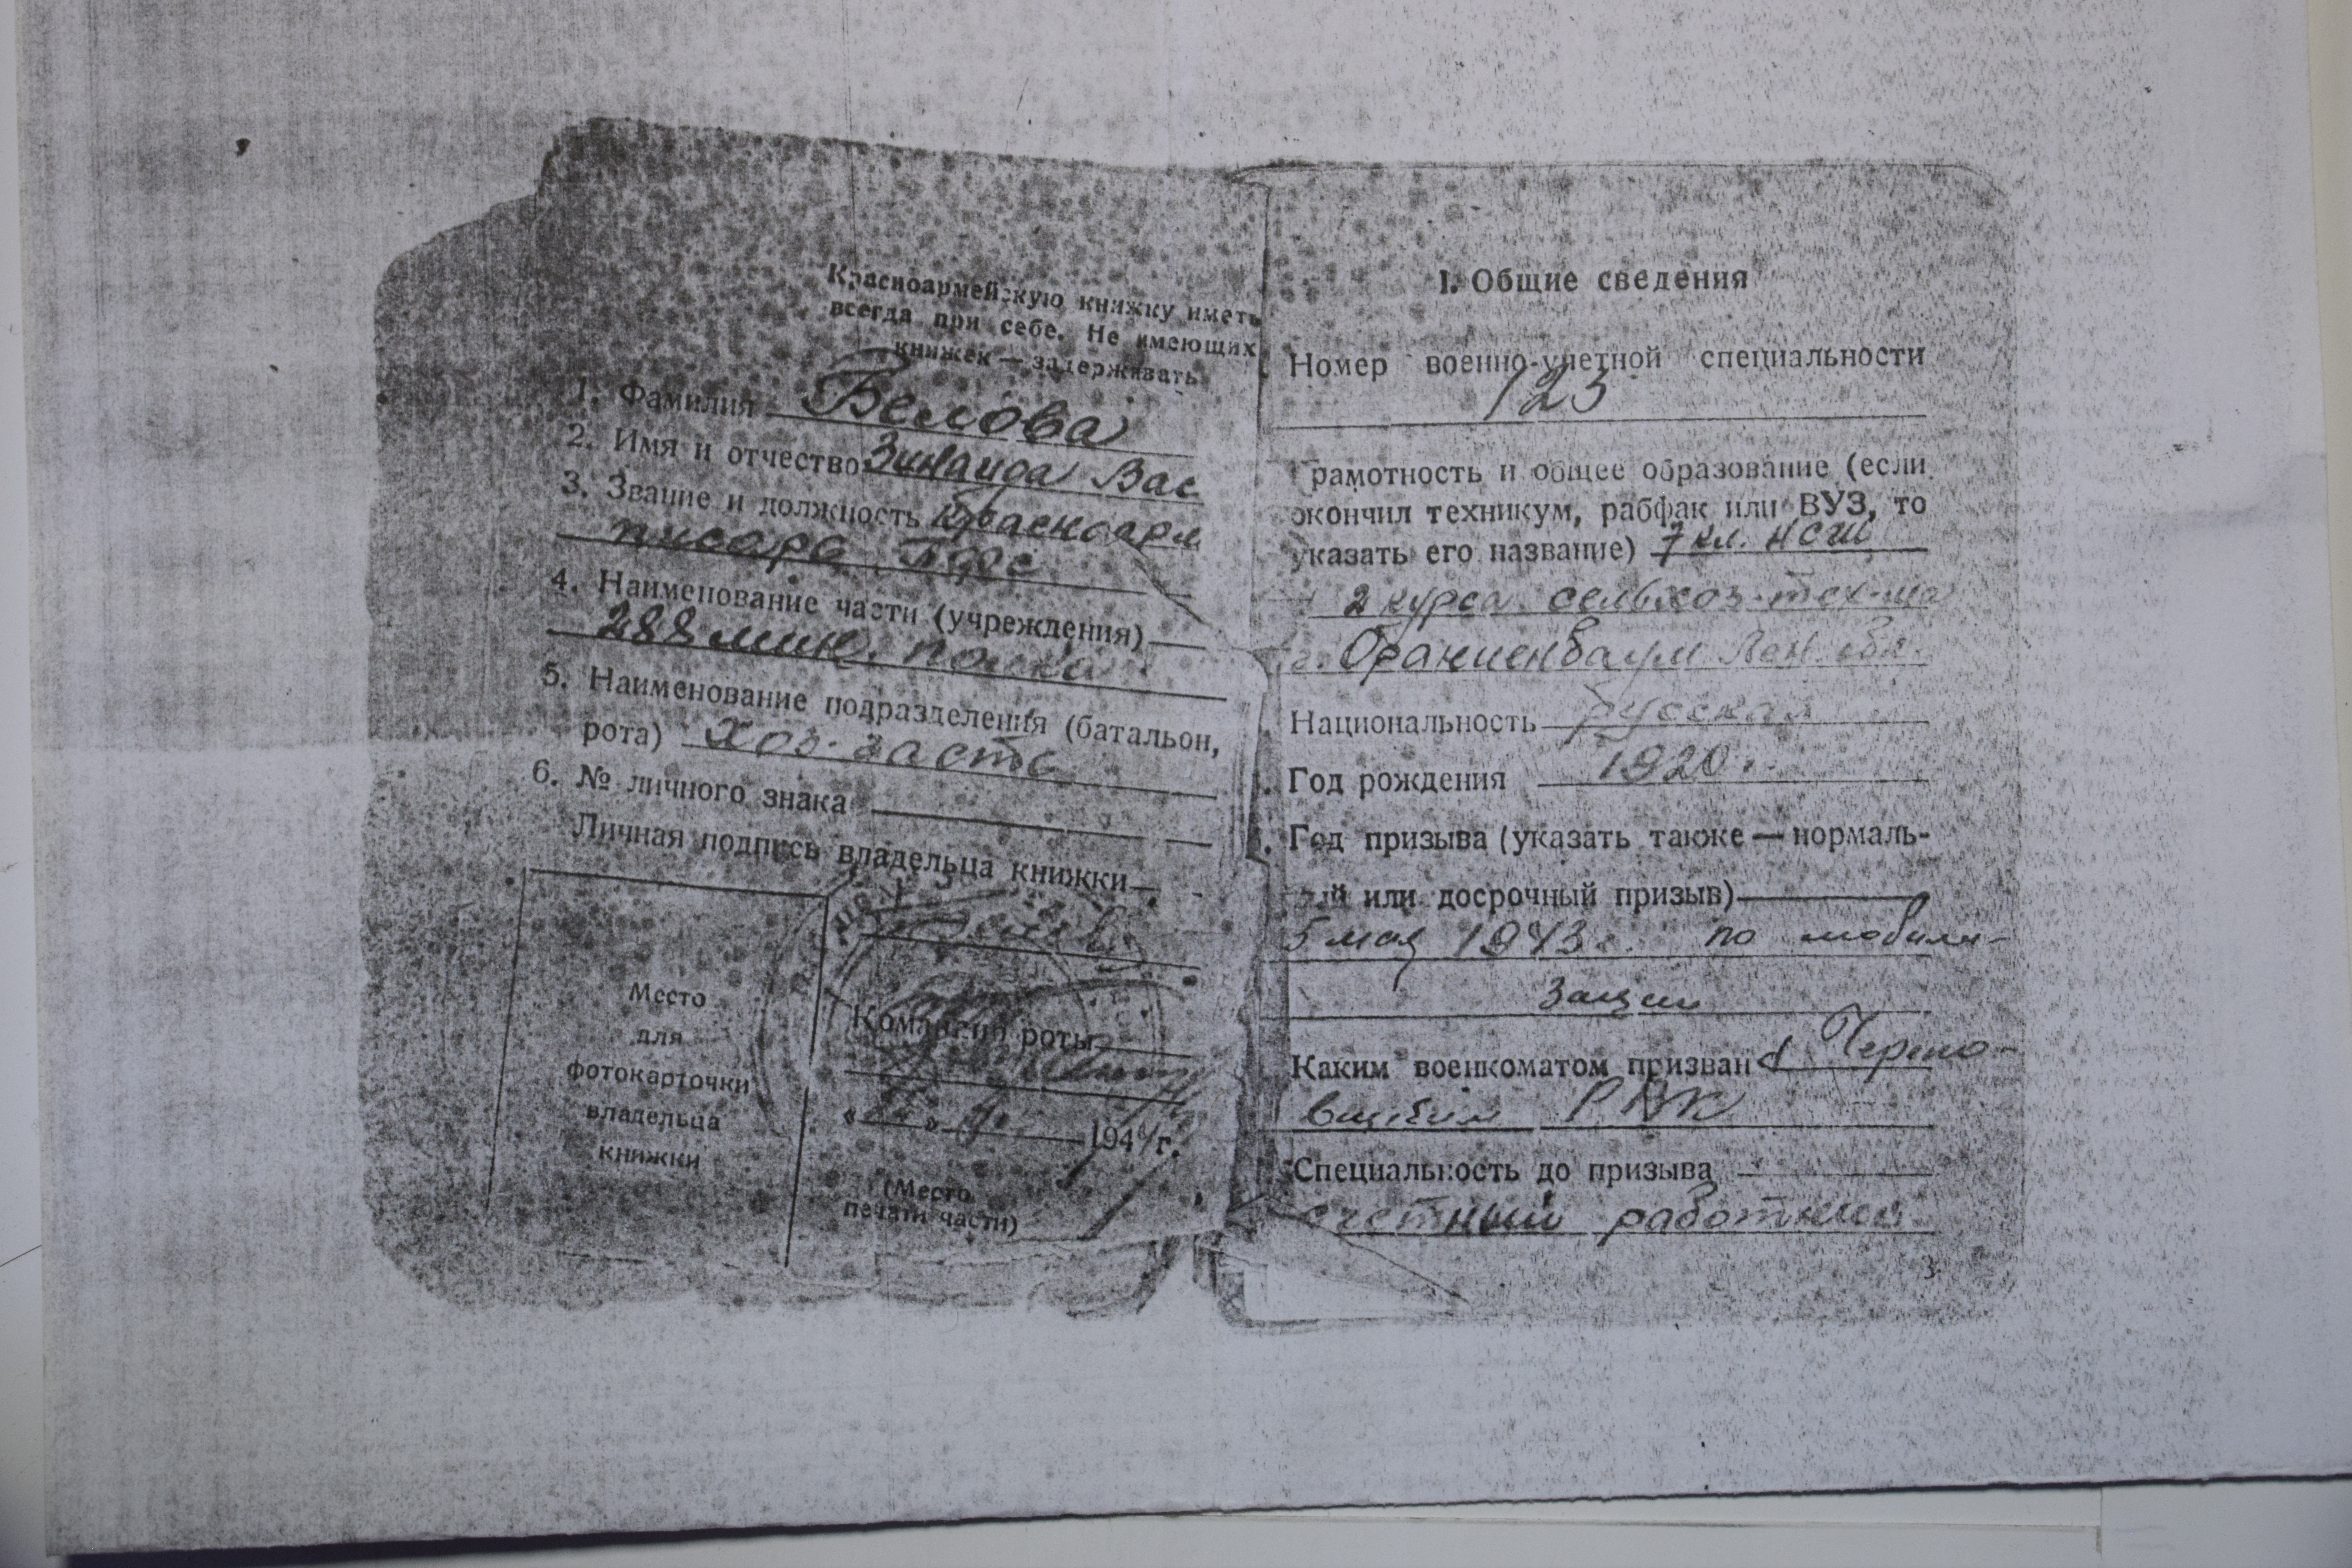 Красноармейскую книжку иметь
всегда при себе. Не имеющих
книжек — задерживать
1. Фамилия Белова
2. Имя и отчество Зинаида Вас
3. Звание и должность Красноарм
писарь ПФС
4. Наименование части (учреждения)
288 мин. полка
5. Наименование подразделения (батальон,
рота) Хоз. часть
6. № личного знака
Личная подпись владельца книжки
Место
для
фотокарточки
владельца
книжки
Командир роты
1944 г.
(Место
печати части)
I. Общие сведения
Номер военно-учетной специальности
123
Грамотность и общее образование (если
окончил техникум, рабфак или ВУЗ, то
указать его название) 7 кл. НСШ
2 курса сельхоз. тех-ма
г. Ораниенбаум Лен. обл.
Национальность русская
Год рождения 1920 г.
Год призыва (указать также — нормаль-
ый или досрочный призыв)
5 мая 1943 г. по мобили-
зации
Каким военкоматом призван Черпо-
РВК
Специальность до призыва
счетный работник
3